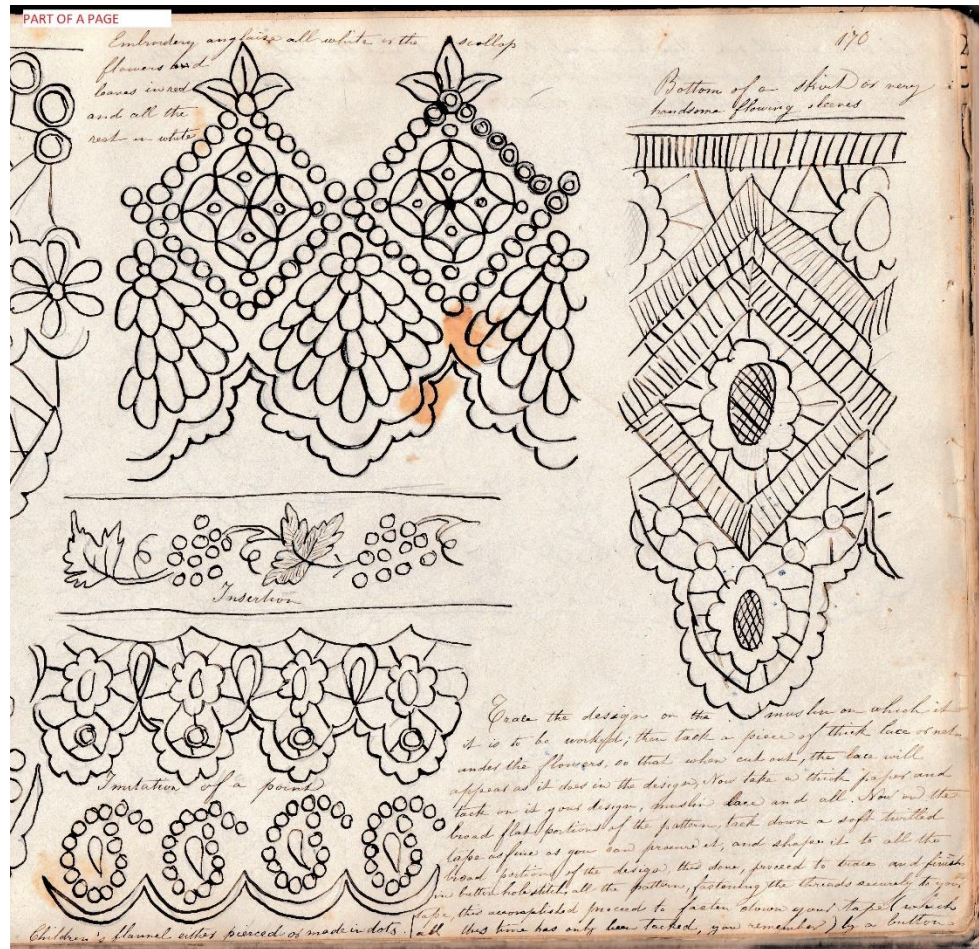 PART OF A PAGE
170
Embroidery anglaise all white is the scollop
flowers and
leaves in red
and all the
rest in white
Bottom of a skirt or very
handsome flowing sleeves
Insertion
Imitation of a point
Trace the design on the muslin on which it
it is to be worked; then tack a piece of thick lace or net
under the flowers, so that when cut out, the lace will
appear as it does in the design, Now take a thick paper and
tack on it your design, muslin lace and all. Now in the
broad flat portions of the pattern, tack down a soft twilled
tape as fine as you can procure it, and shape it to all the
broad portions of the design, this done, proceed to trace and finish
in button hole stitch, all the pattern, fastening the threads securely to your
tape, this accomplished proceed to fasten down your tape (which
all this time has only been tacked, you remember) by a button
Children's flannel either pierced or made in dots.